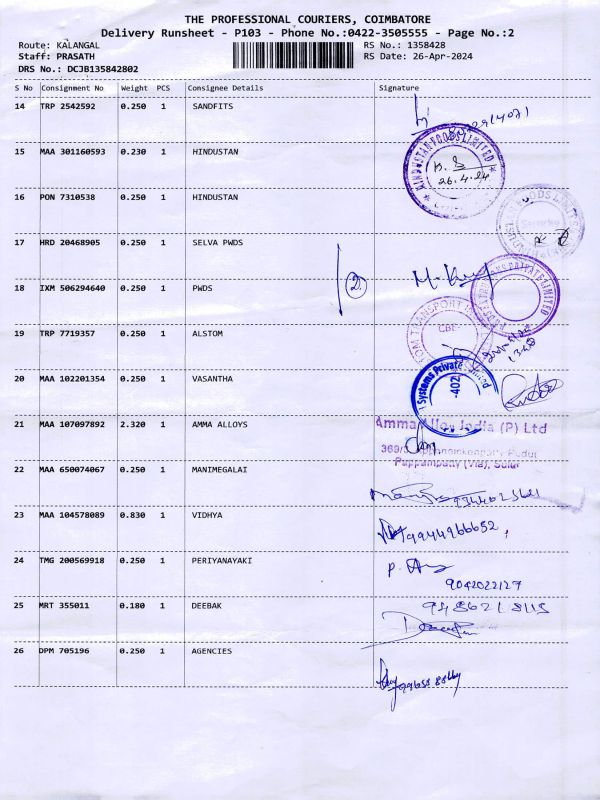 THE PROFESSIONAL COURIERS, COIMBATORE
Delivery Runsheet - P103 - Phone No.:0422-3505555 - Page No.:2
Route: KALANGAL RS No.: 1358428
Staff: PRASATH RS Date: 26-Apr-2024
DRS No.: DCJB135842802
S No Consignment No Weight PCS Consignee Details Signature
14 TRP 2542592 0.250 1 SANDFITS
15 MAA 301160593 0.230 1 HINDUSTAN
HINDUSTAN FOODS LIMITED
26.4.24
16 PON 7310538 0.250 1 HINDUSTAN
17 HRD 20468905 0.250 1 SELVA PWDS
18 IXM 506294640 0.250 1 PWDS
2
PRIVATE LIMITED
19 TRP 7719357 0.250 1 ALSTOM
TRANSPORT
CBE
20 MAA 102201354 0.250 1 VASANTHA
Systems Private
-402
21 MAA 107097892 2.320 1 AMMA ALLOYS
Amma Alloy India (P) Ltd
Pappampatty (Via), Sulur
22 MAA 650074067 0.250 1 MANIMEGALAI
23 MAA 104578089 0.830 1 VIDHYA
9944966652
24 TMG 200569918 0.250 1 PERIYANAYAKI
9042022127
25 MRT 355011 0.180 1 DEEBAK
26 DPM 705196 0.250 1 AGENCIES